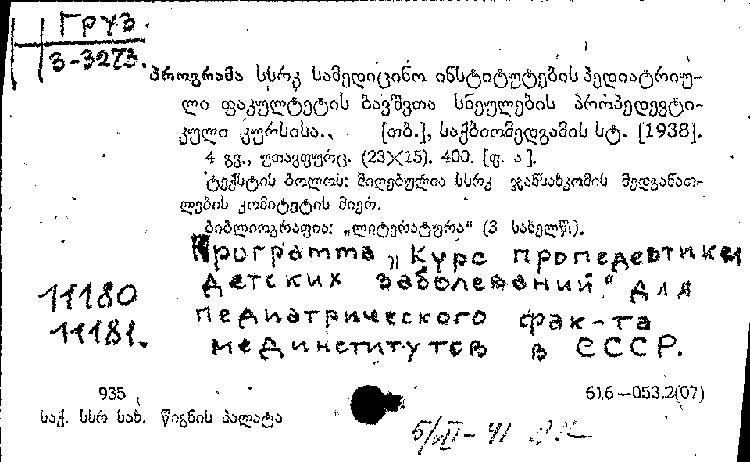 Груз.
3-3273.
პროგრამა სსრკ სამედიცინო ინსტიტუტების პედიატრიუ-
ლი ფაკულტეტის ბავშვთა სნეულების პროპედევტი-
კული კურსისა.. [თბ.], საქბიომედგამის სტ. [1938].
4 გვ., უთავფურც. (23X15). 400. [ფ. ა].
ტექსტის ბოლოს: მიღებულია სსრკ ჯანსახკომის მედგანათ-
ლების კომიტეტის მიერ.
ბიბლიოგრაფია: „ლიტერატურა“ (3 სახელწ.).
Программа „Курс пропедевтики
детских заболеваний“ для
11180
педиатрического фак-та
11181.
мединститутов в СССР.
935
616—053.2(07)
საქ. სსრ სახ. წიგნის პალატა
5/VII-41